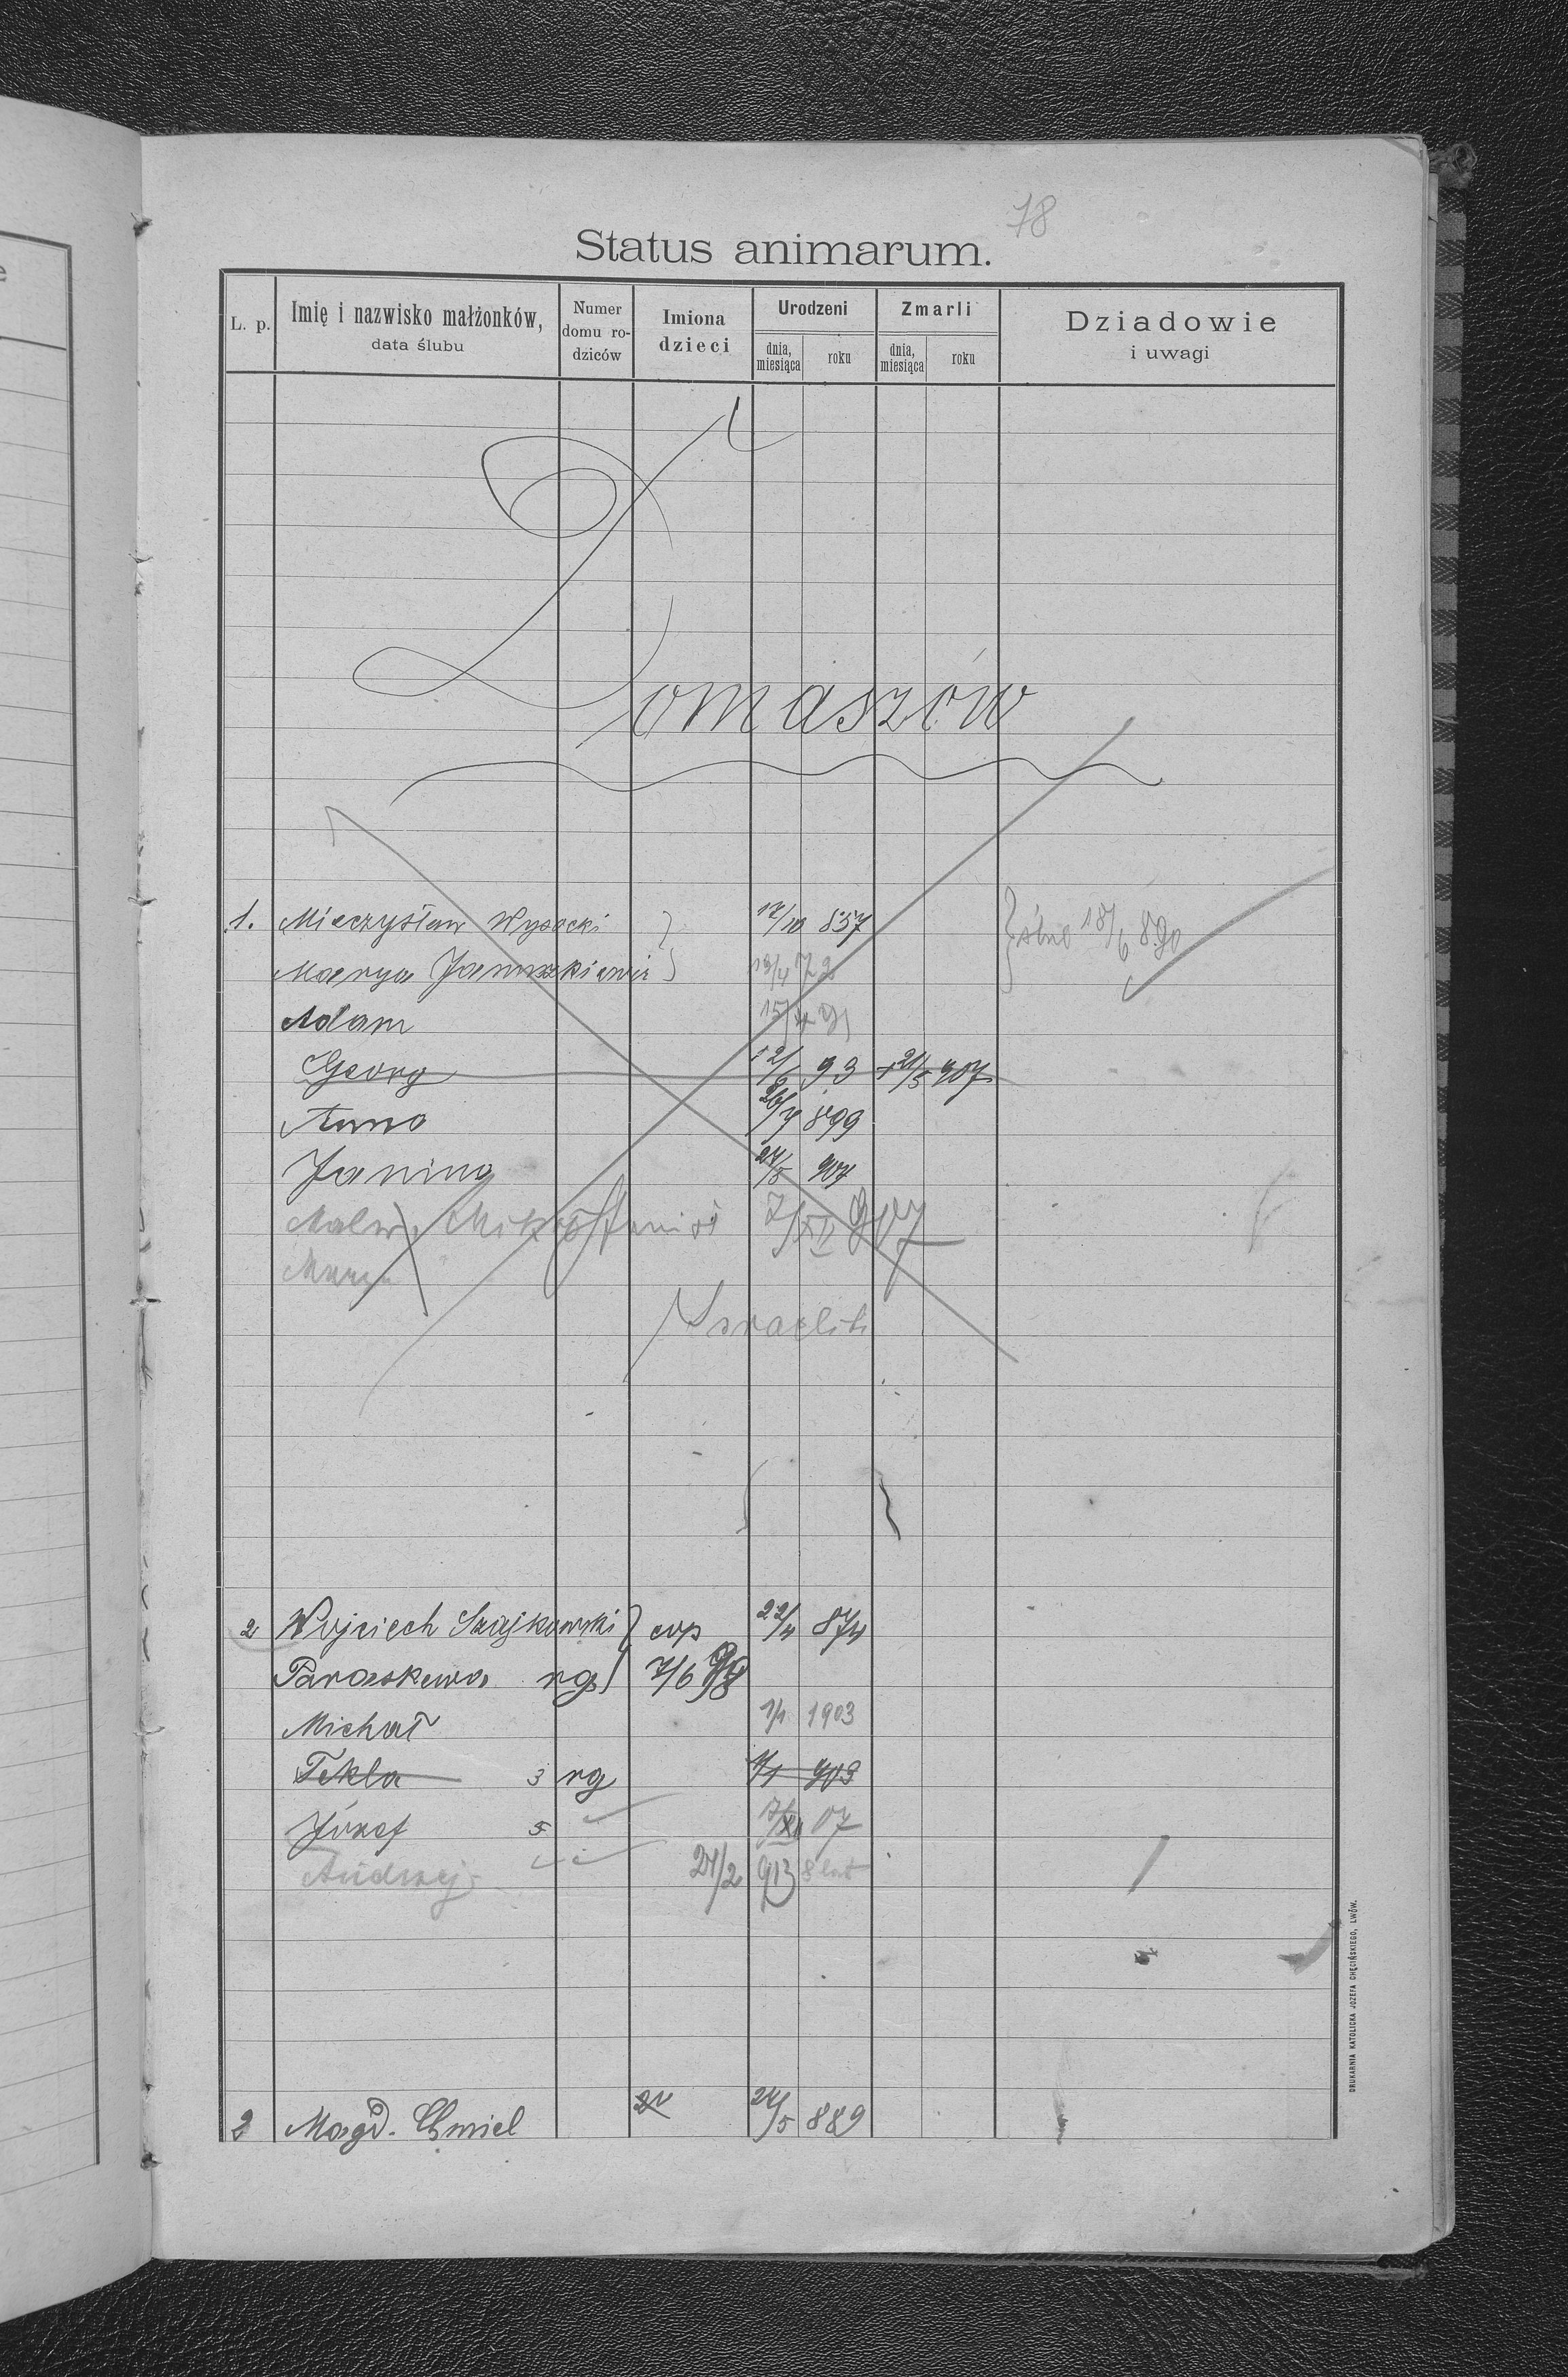 78
Status animarum.
L. p. Imię i nazwisko małżonków, data ślubu Numer domu rodziców Imiona dzieci Urodzeni dnia, miesiąca roku Zmarli dnia, miesiąca roku Dziadowie i uwagi
Tomaszów
1. Mieczysław Wysocki 17/10 857
Marya 72 18/6 890
Adam 15/4
Georg 93 + 21/5 907
Anna 26/7 899
Janina 24/5 907
7/XII 907
Marya
Israeliti
2 Wojciech Szajkowski cop 22/4 874
Paraskewa rg 7/6 98
Michał 1/1 1903
Tekla 3 rg 903
Józef 5 7/XII 07
Andrzej 24/2 913 8 lat
2 Magd. Chmiel 24/5 889
DRUKARNIA KATOLICKA JÓZEFA CHĘCIŃSKIEGO, LWÓW.